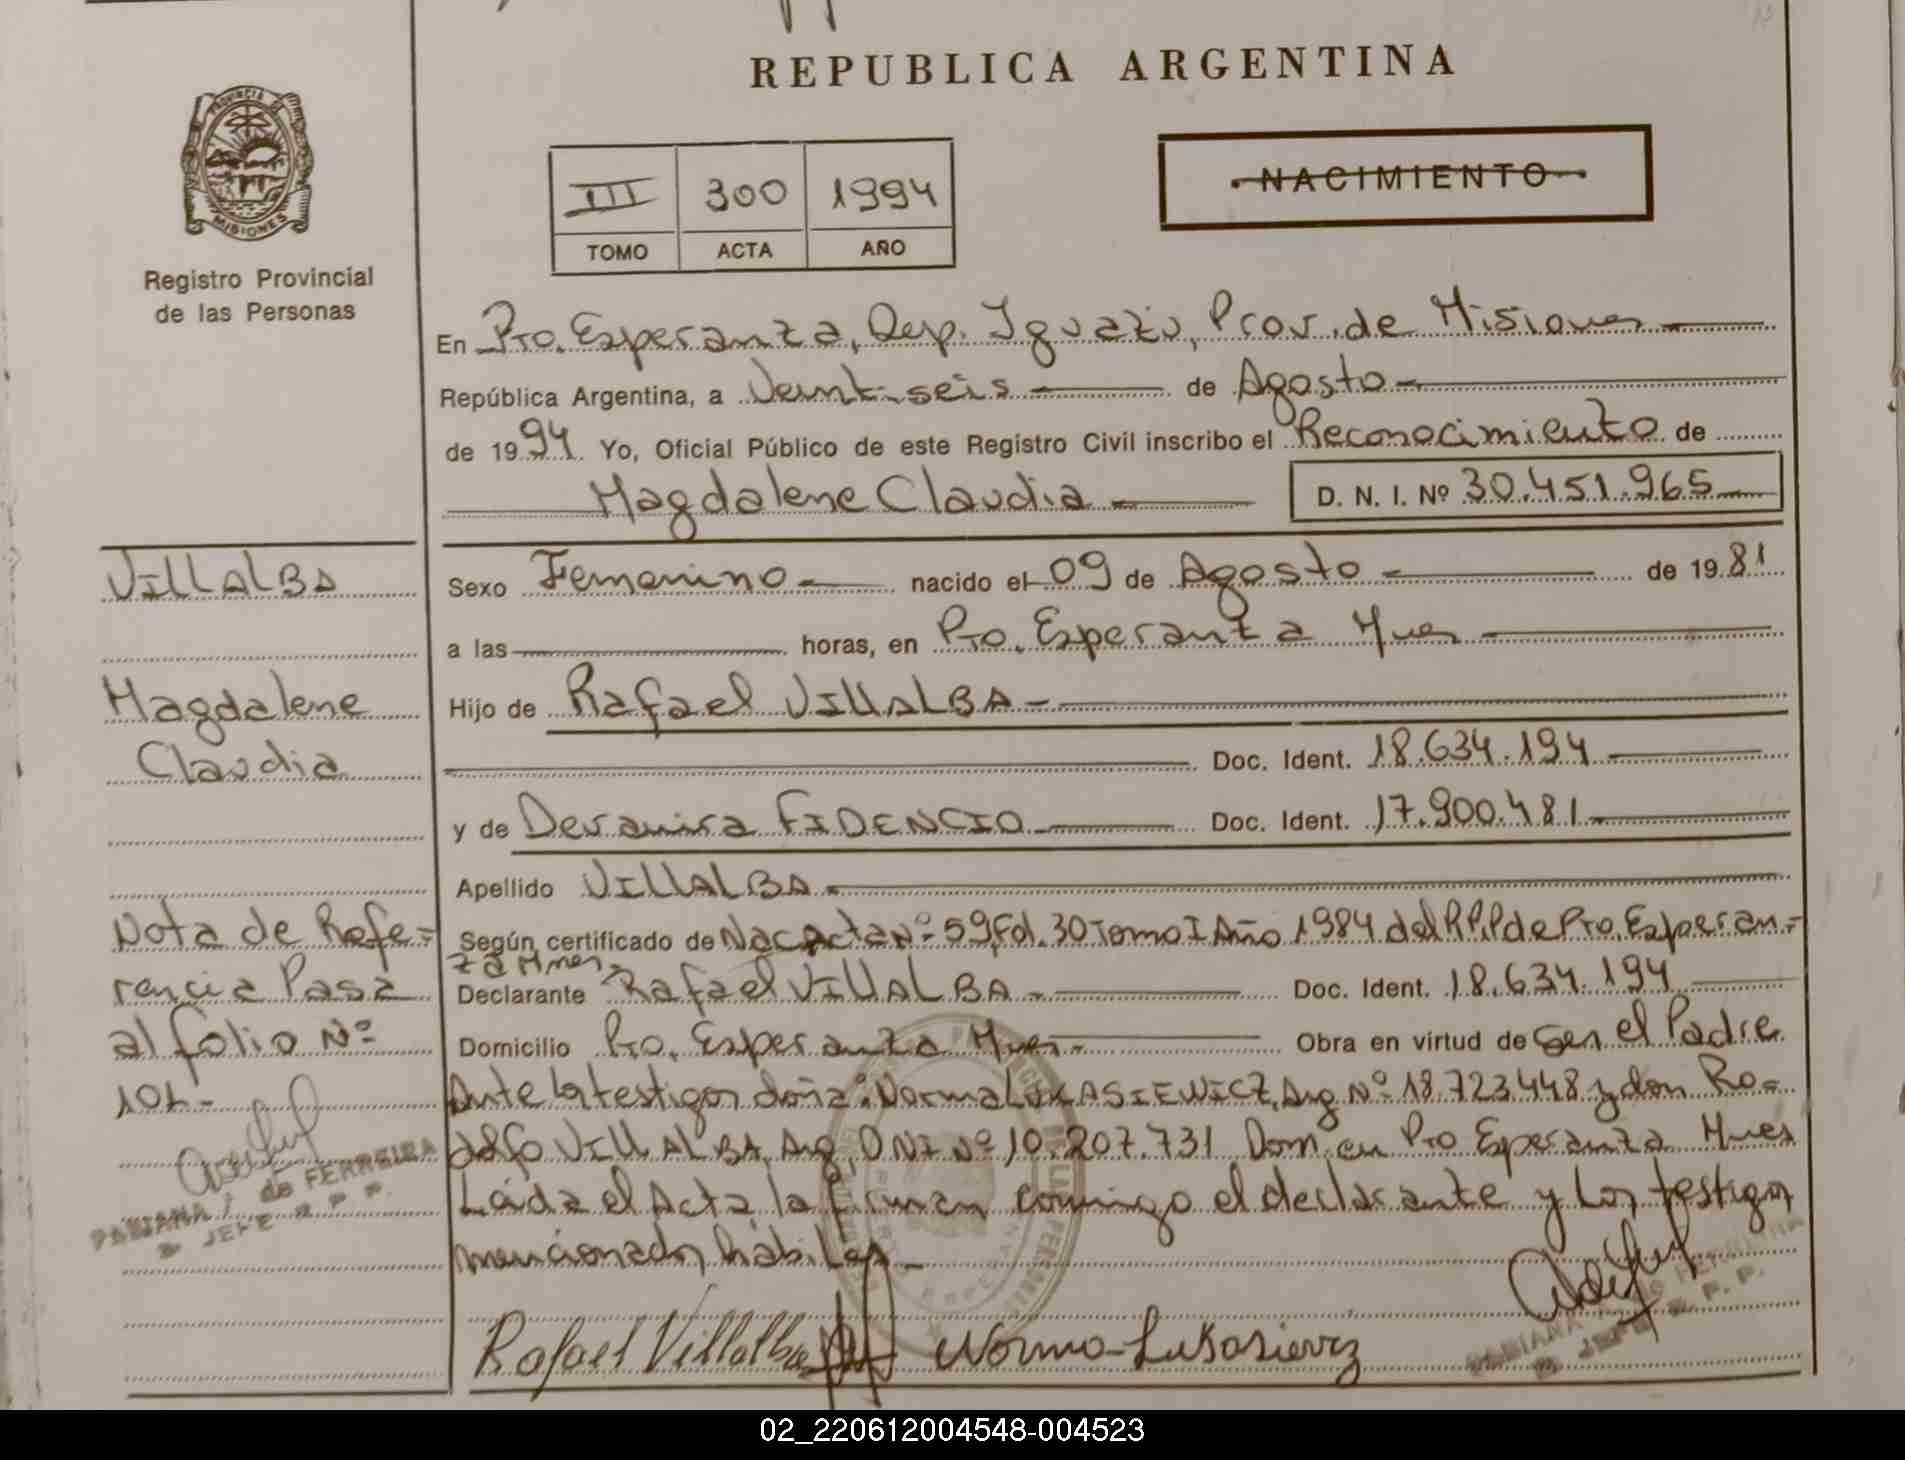 REPUBLICA ARGENTINA
PROVINCIA DE
MISIONES
Registro Provincial
de las Personas
III 300 1994
TOMO ACTA AÑO
NACIMIENTO
En Pto. Esperanza, Dep. Iguazú, Prov. de Misiones
República Argentina, a Veintiseis de Agosto
de 1994 Yo, Oficial Público de este Registro Civil inscribo el Reconocimiento de
Magdalene Claudia D. N. I. Nº 30.451.965
VILLALBA
Magdalene
Claudia
Nota de Refe=
rencia Pasa
al folio Nº
101-
FERREIRA
JEFE R P P.
Sexo Femenino nacido el 09 de Agosto de 1981
a las horas, en Pto. Esperanza Mnes
Hijo de Rafael VILLALBA
Doc. Ident. 18.634.194
y de Deranira FIDENCIO Doc. Ident. 17.900.481
Apellido VILLALBA
Según certificado de Nac Acta Nº 59, Fol. 30 Tomo I Año 1984 del R.P.P de Pto. Esperan=
za Mnes.
Declarante Rafael VILLALBA Doc. Ident. 18.634.194
Domicilio Pto. Esperanza Mnes. Obra en virtud de Ser el Padre
Ante los testigos doña: Norma LUKASIEWICZ, Arg Nº 18.723.448 y don Ro=
dolfo VILLALBA, Arg, DNI Nº 10.207.731 Dom. en Pto Esperanza Mnes
Leída el Acta, la firman conmigo el declarante y los testigos
mencionados hábiles.
Rafael Villalba Norma Lukasievicz
JEFE R. P. P.
02_220612004548-004523